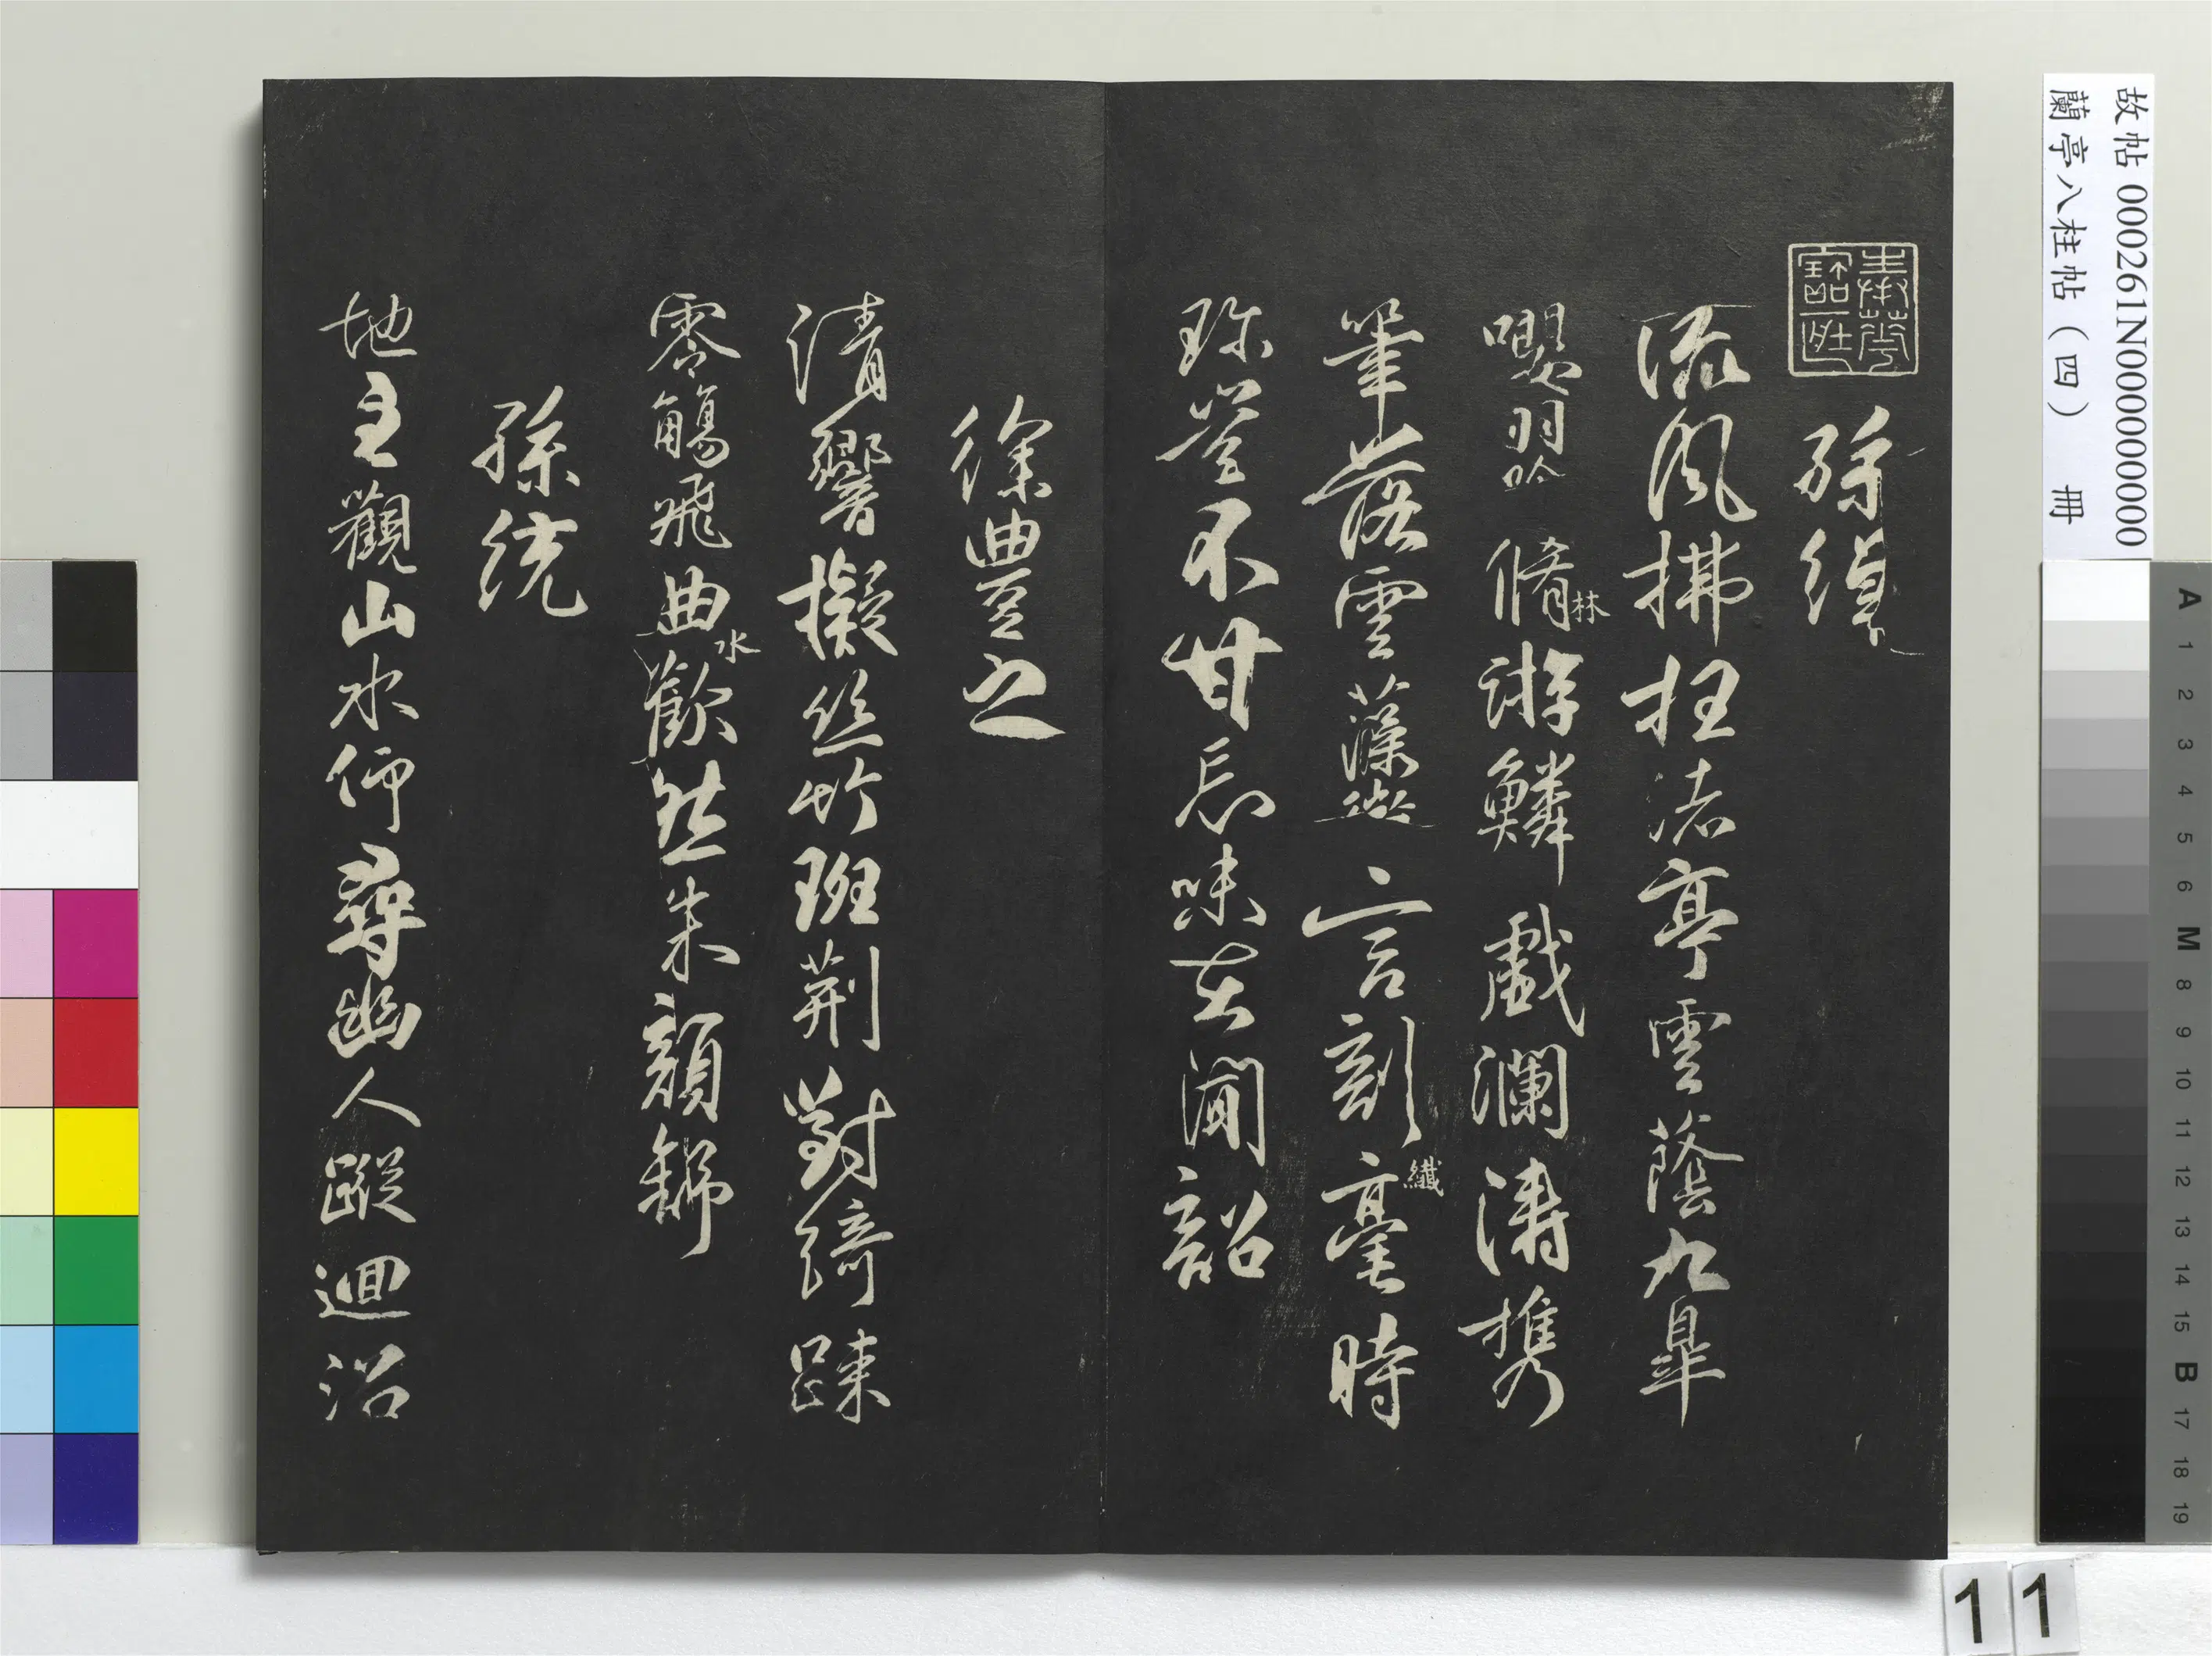 故帖 000261N000000000
蘭亭八柱帖（四） 冊
孫綽
流風拂枉渚亭雲蔭九皋
嚶羽吟脩林游鱗戲瀾濤攜
筆落雲藻微言剖纖毫時
珍豈不甘忘味在聞韶
徐豐之
清響擬絲竹班荊對綺疎
零觴飛曲水歡然朱顏舒
孫統
地主觀山水仰尋幽人蹤迴沼
A 1 2 3 4 5 6 M 8 9 10 11 12 13 14 15 B 17 18 19
1 1